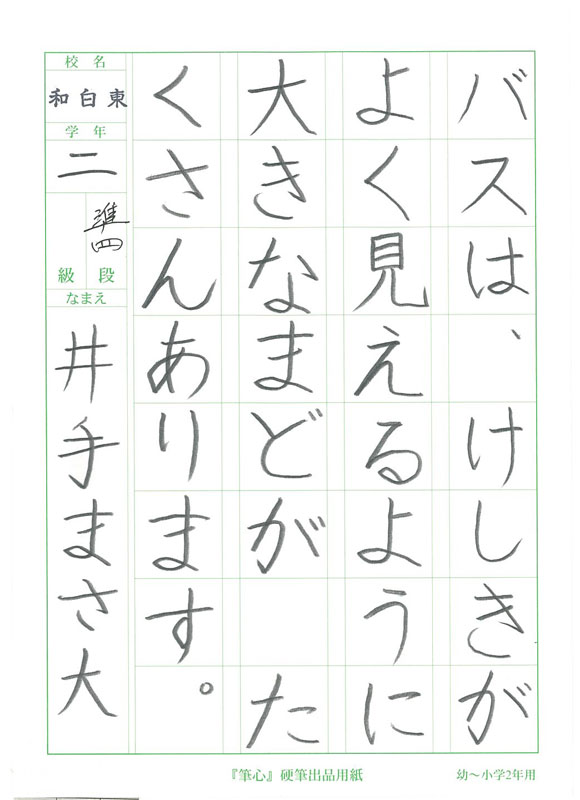 バスは、けしきが
よく見えるように
大きなまどが　た
くさんあります。
校名
和白東
学年
二
準四
級 段
なまえ
井手まさ大
『筆心』硬筆出品用紙
幼～小学2年用